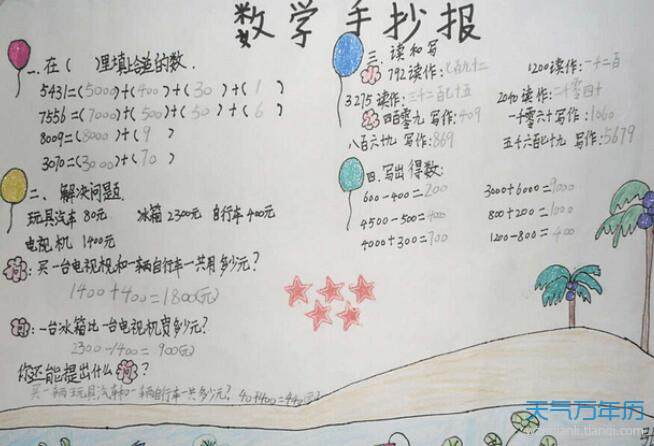 数学手抄报
一.在( )里填上合适的数.
5431=(5000)+(400)+(30)+(1)
7556=(7000)+(500)+(50)+(6)
8009=(8000)+(9)
3070=(3000)+(70)
二、解决问题.
玩具汽车80元 冰箱2300元 自行车400元
电视机 1400元
问:买一台电视机和一辆自行车一共用多少元?
1400+400=1800(元)
问:一台冰箱比一台电视机贵多少元?
2300-1400=900(元)
你还能提出什么问?
买一辆玩具汽车和一辆自行车一共多少元?
三.读和写
792读作:七百九十二 1200读作:一千二百
3275读作:三千二百七十五 2040读作:二千零四十
四百零九 写作:409 一千零六十 写作:1060
八百六十九 写作:869 五千六百七十九 写作:5679
四.写出得数:
600-400=200 3000+6000=9000
4500-500= 800+200=1000
4000+300=700 1200-800=400
天气万年历
wannianli.tianqi.com